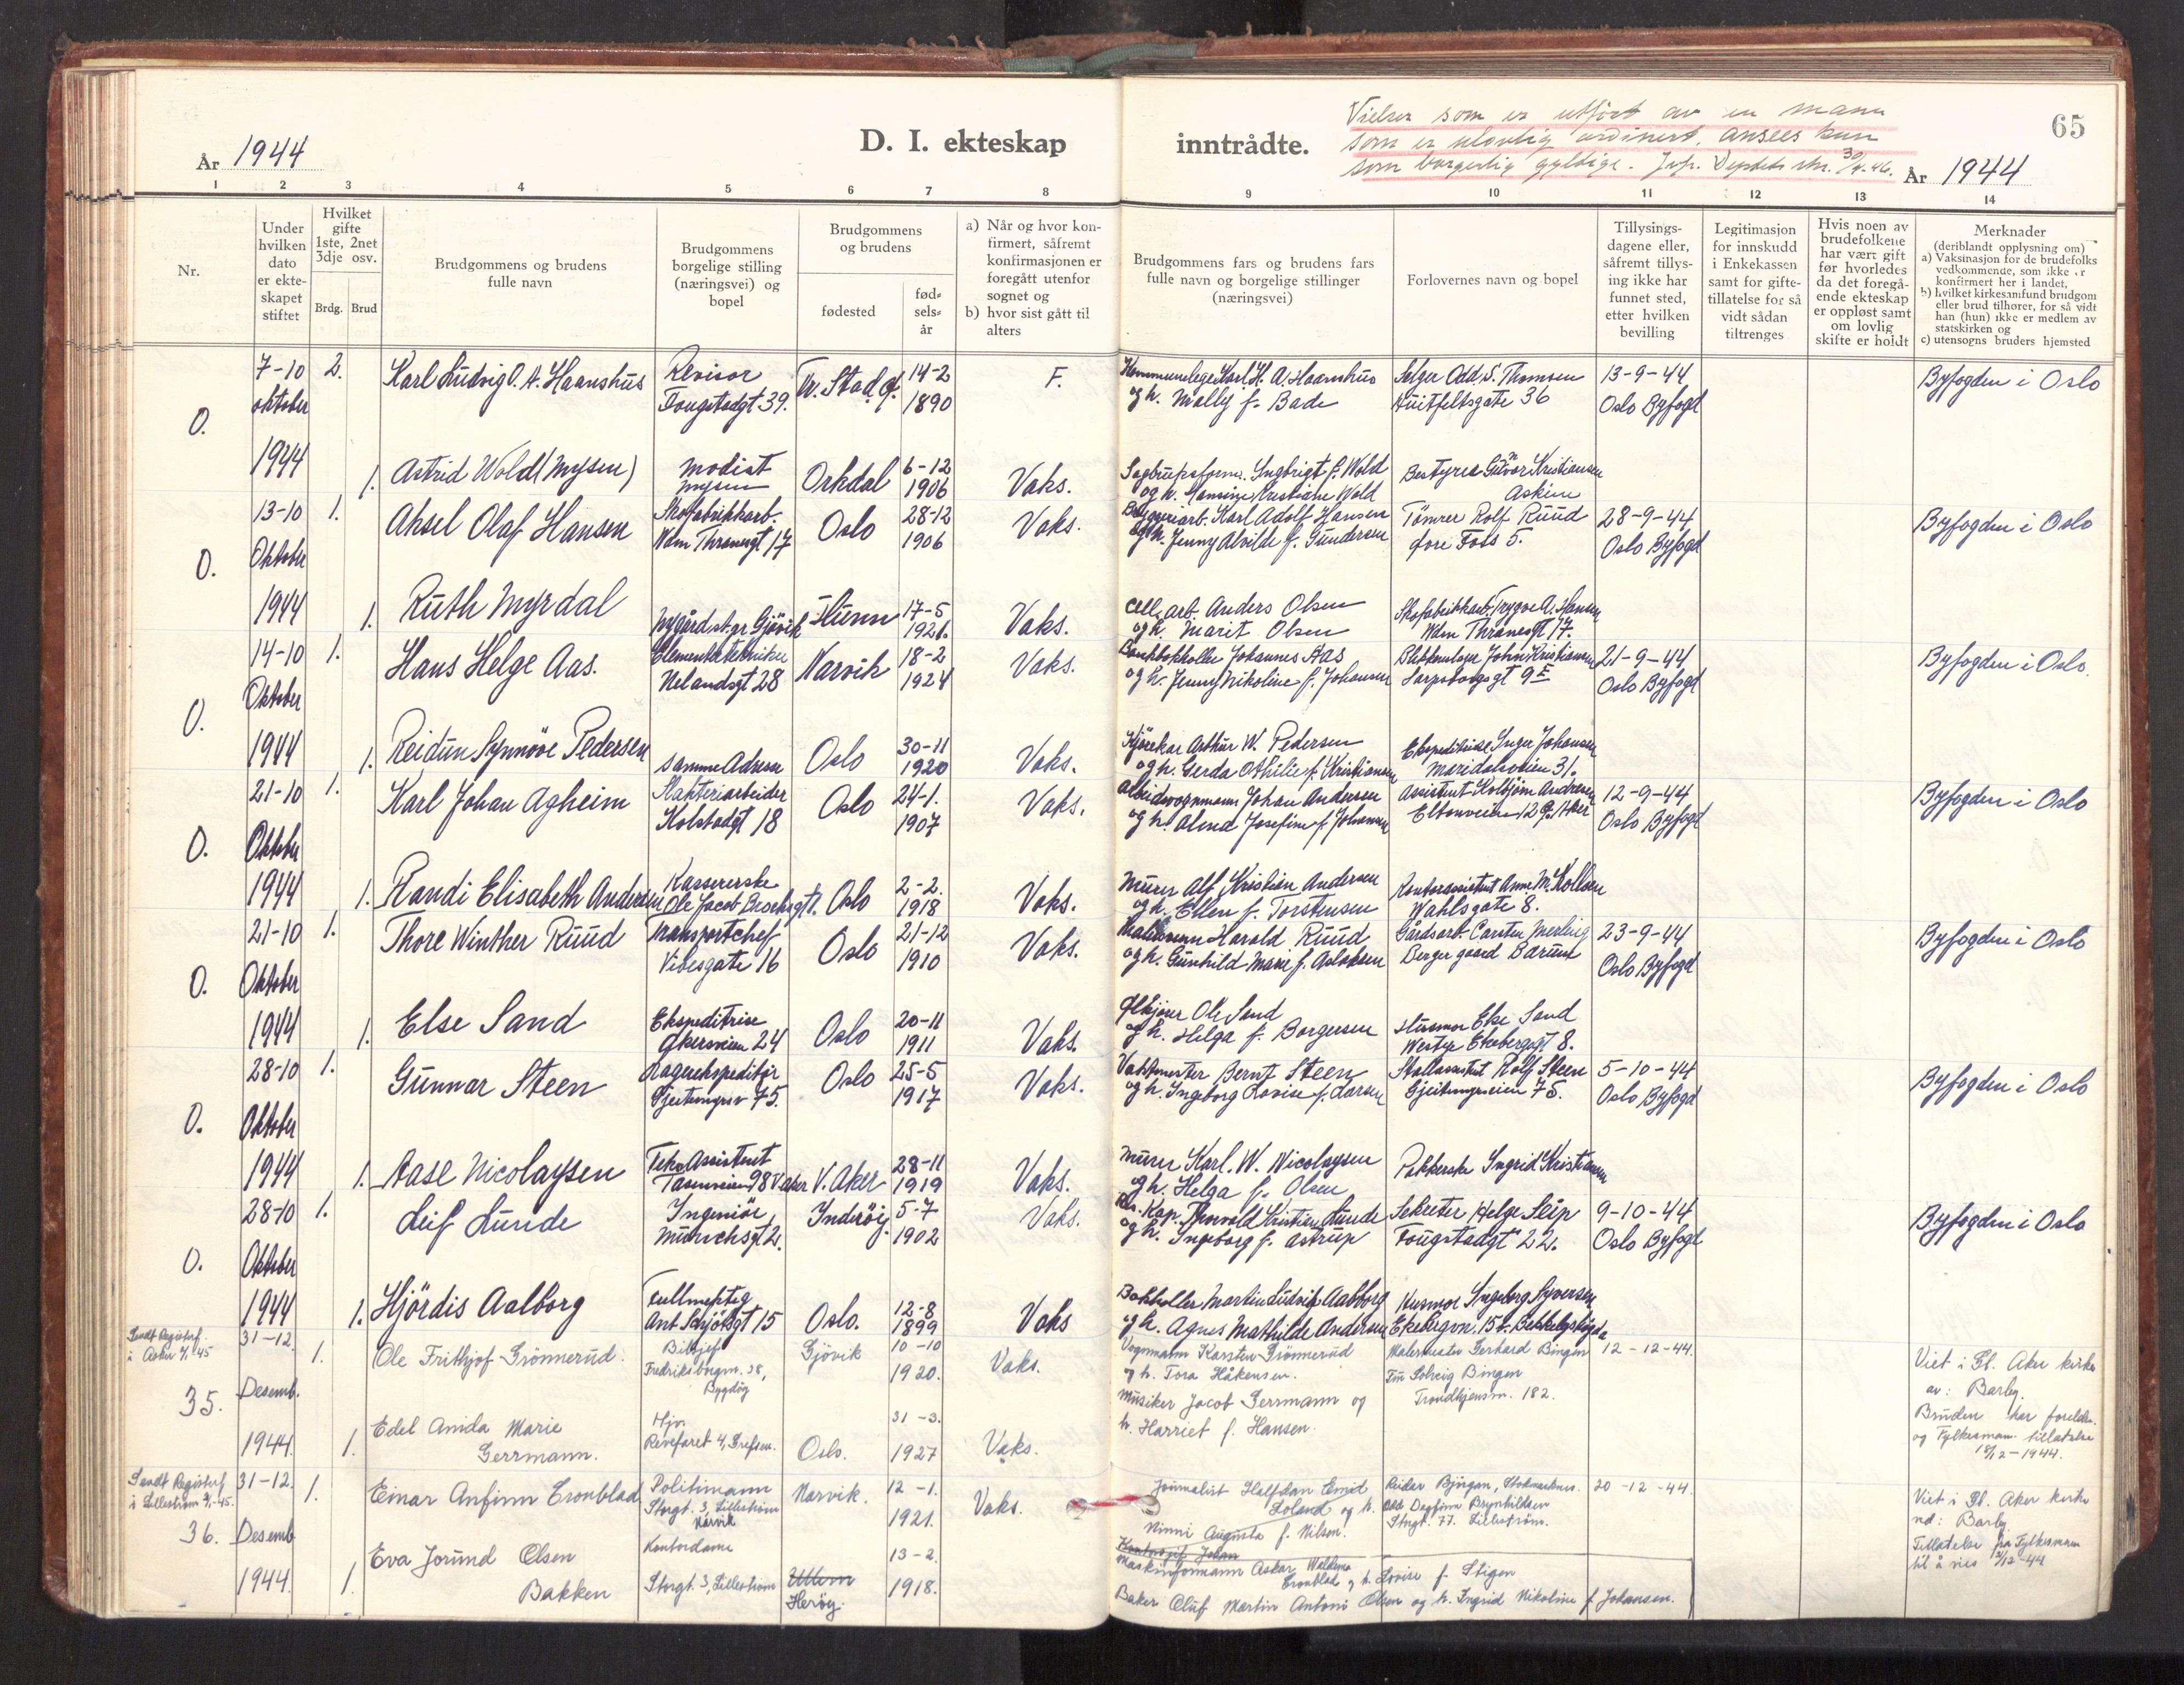 År 1944
D. I. ekteskap
inntrådte.
Vielser som er utført av en mann
som er ulovlig ordinert, ansees kun
som borgerlig gyldige. Jvfr. Deptets skr. 30/4-46.
65
År 1944
1 2 3 4 5 6 7 8 9 10 11 12 13 14
Nr.
Under
hvilken
dato
er ekte-
skapet
stiftet
Hvilket
gifte
1ste, 2net
3dje osv.
Brdg. Brud
Brudgommens og brudens
fulle navn
Brudgommens
borgelige stilling
(næringsvei) og
bopel
Brudgommens
og brudens
fødested
fød-
sels-
år
a) Når og hvor kon-
firmert, såfremt
konfirmasjonen er
foregått utenfor
sognet og
b) hvor sist gått til
alters
Brudgommens fars og brudens fars
fulle navn og borgelige stillinger
(næringsvei)
Forlovernes navn og bopel
Tillysings-
dagene eller,
såfremt tillys-
ing ikke har
funnet sted,
etter hvilken
bevilling
Legitimasjon
for innskudd
i Enkekassen
samt for gifte-
tillatelse for så
vidt sådan
tiltrenges
Hvis noen av
brudefolkene
har vært gift
før hvorledes
da det foregå-
ende ekteskap
er oppløst samt
om lovlig
skifte er holdt
Merknader
(deriblandt opplysning om)
a) Vaksinasjon for de brudefolks
vedkommende, som ikke er
konfirmert her i landet,
b) hvilket kirkesamfund brudgom
eller brud tilhører, for så vidt
han (hun) ikke er medlem av
statskirken og
c) utensogns bruders hjemsted
O.
7-10
oktober
1944
2.
Karl Ludvig O. A. Haanshus
Revisor
Fougstadgt 39.
14-2
1890
F.
Kommunelege Karl H. A. Haanshus
og h. Molly f. Bade
Selger Odd S. Thomsen
Huitfeltsgate 36
13-9-44
Oslo Byfogd
Byfogden i Oslo
1.
Astrid Wold (Mysen)
Modist
Mysen
Orkdal
6-12
1906
Vaks.
Ingbrigt f. Wold
og h. Hansine Kristiane Wold
Bestyrer Gunvor Kristiansen
Askim
O.
13-10
Oktober
1944
1.
Aksel Olaf Hansen
Skofabrikkarb.
Wdm Thranesgt 17
Oslo
28-12
1906
Vaks.
Bryggeriarb. Karl Adolf Hansen
og h. Jenny Alvilde f. Gundersen
Tømrer Rolf Ruud
fore Foss 5.
28-9-44
Oslo Byfogd
Byfogden i Oslo
1.
Ruth Myrdal
Nygård st. gr. Gjøvik
Hunn
17-5
1921.
Vaks.
Cell. arb. Anders Olsen
og h. Marit Olsen
Skofabrikkarb. Trygve A. Hansen
Wdm Thranesgt 17.
O.
14-10
Oktober
1944
1.
Hans Helge Aas.
Nelandsgt 28
Narvik
18-2
1924
Vaks.
Bankbokholder Johannes Aas
og h. Jenny Nikoline f. Johansen
Blikkenslager John Kristiansen
Sarpsborggt 9 E
21-9-44
Oslo Byfogd
Byfogden i Oslo.
1.
Reidun Synnöve Pedersen
samme Adresse
Oslo
30-11
1920
Vaks.
Kjörekar Arthur W. Pedersen
og h. Gerda Othilie f. Kristiansen
Ekspeditrise Inger Johansen
Maridalsveien 31.
O.
21-10
Oktober
1944
1.
Karl Johan Agheim
Slakteriarbeider
Kolstadgt 18
Oslo
24-1.
1907
Vaks.
Arbeidsvognmann Johan Andersen
og h. Alend Josefine f. Johansen
Assistent Kolbjörn Andresen
Eltonveien 12 Ø. Aker
12-9-44
Oslo Byfogd
Byfogden i Oslo
1.
Randi Elisabeth Andersen
Kassererske
Ole Jacob Brochsgt 1.
Oslo
2-2.
1918
Vaks.
Murer Alf Kristian Andersen
og h. Ellen f. Torstensen
Kontorassistent Anne M. Kollsen
Wahlsgate 8.
O.
21-10
Oktober
1944
1.
Thore Winther Ruud
Transportchef
Vibesgate 16
Oslo
21-12
1910
Vaks.
Harald Ruud
og h. Gunhild Marie f. Aslaksen
Gårdsarb. Carsten Merling
Berger gaard Bærum
23-9-44
Oslo Byfogd
Byfogden i Oslo
1.
Else Sand
Ekspeditrise
Akersveien 24
Oslo
20-11
1911
Vaks.
Ole Sand
og h. Helga f. Borgersen
Husmor Else Sand
Westye Ekebergsgt 8.
O.
28-10
Oktober
1944
1.
Gunnar Steen
Lagerekspeditör
Gjeitemyrsv 75.
Oslo
25-5
1917
Vaks.
Vaktmester Bernt Steen
og h. Ingeborg Lovise f. Larsen
Rolf Steen
Gjeitemyrsveien 75.
5-10-44
Oslo Byfogd
Byfogden i Oslo
1.
Aase Nicolaysen
Tekn Assistent
Taasenveien 98 V. aker
V. Aker
28-11
1919
Vaks.
Murer Karl. W. Nicolaysen
og h. Helga f. Olsen
Pakkerske Ingrid Kristiansen
O.
28-10
Oktober
1944
1.
Leif Lunde
Ingeniör
Munchsgt 2.
Inderöy.
5-7
1902
Vaks.
Res. Kap. Thorvald Kristian Lunde
og h. Ingeborg f. Astrup
Sekretær Helge Seip
Fougstadgt 22.
9-10-44
Oslo Byfogd
Byfogden i Oslo
1.
Hjördis Aalborg
Fullmektig
Ant. Schjötsgt 15
Oslo.
12-8
1899
Vaks
Bokholder Martin Ludvig Aalborg
og h. Agnes Mathilde Andersen
Husmor Ingeborg Syversen
Ekebergvn. 15 b. Bekkelagshögda
Sendt Registerf.
i Asker 4/1-45
35.
31-12.
Desemb.
1944.
1.
Ole Frithjof Grönnerud.
Bilsjef
Fredriksborgvn. 38,
Bygdöy
Gjövik
10-10
1920.
Vaks.
Vognmann Karsten Grönnerud
og h. Tora Håkensen.
Malermester Gerhard Bingen
Fru Solveig Bingen
Trondhjemsvn. 182.
12-12-44.
Viet i Gl. Aker kirke
av: Barby.
Bruden har foreldre-
og Fylkesmann tillatelse
18/12-1944.
1.
Edel Amida Marie
Gerrmann.
Hjv.
Revefaret 4, Grefsen.
Oslo.
31-3.
1927
Vaks.
Musiker Jacob Gerrmann og
h. Harriet f. Hansen.
Sendt Registerf
i Lillestrøm 4/1-45.
36.
31-12.
Desemb
1944.
1.
Einar Anfinn Cronblad
Politimann
Storgt. 3, Lillestrøm
Narvik
Narvik.
12-1.
1921.
Vaks.
Journalist Halfdan Emil
Loland og h.
Ninni Augusta f. Nilsen.
Reidar Bjørgan, Stokmarknes.
Odd Dagfinn Brynhildsen
Storgt. 77. Lillestrøm.
20-12-44.
Viet i Gl. Aker kirke
ved: Barby
Tillatelse fra Fylkesmann
til å vies 21/12-44
1.
Eva Jorund Olsen
Bakken
Kontordame
Storgt. 3, Lillestrøm
Ullern
Herøy.
13-2.
1918.
Kontorsjef Johan
Maskinformann Oskar Waldemar
Cronblad og h. Lovise f. Stigen
Baker Oluf Martin Antoni Olsen og h. Ingrid Nikoline f. Johansen.